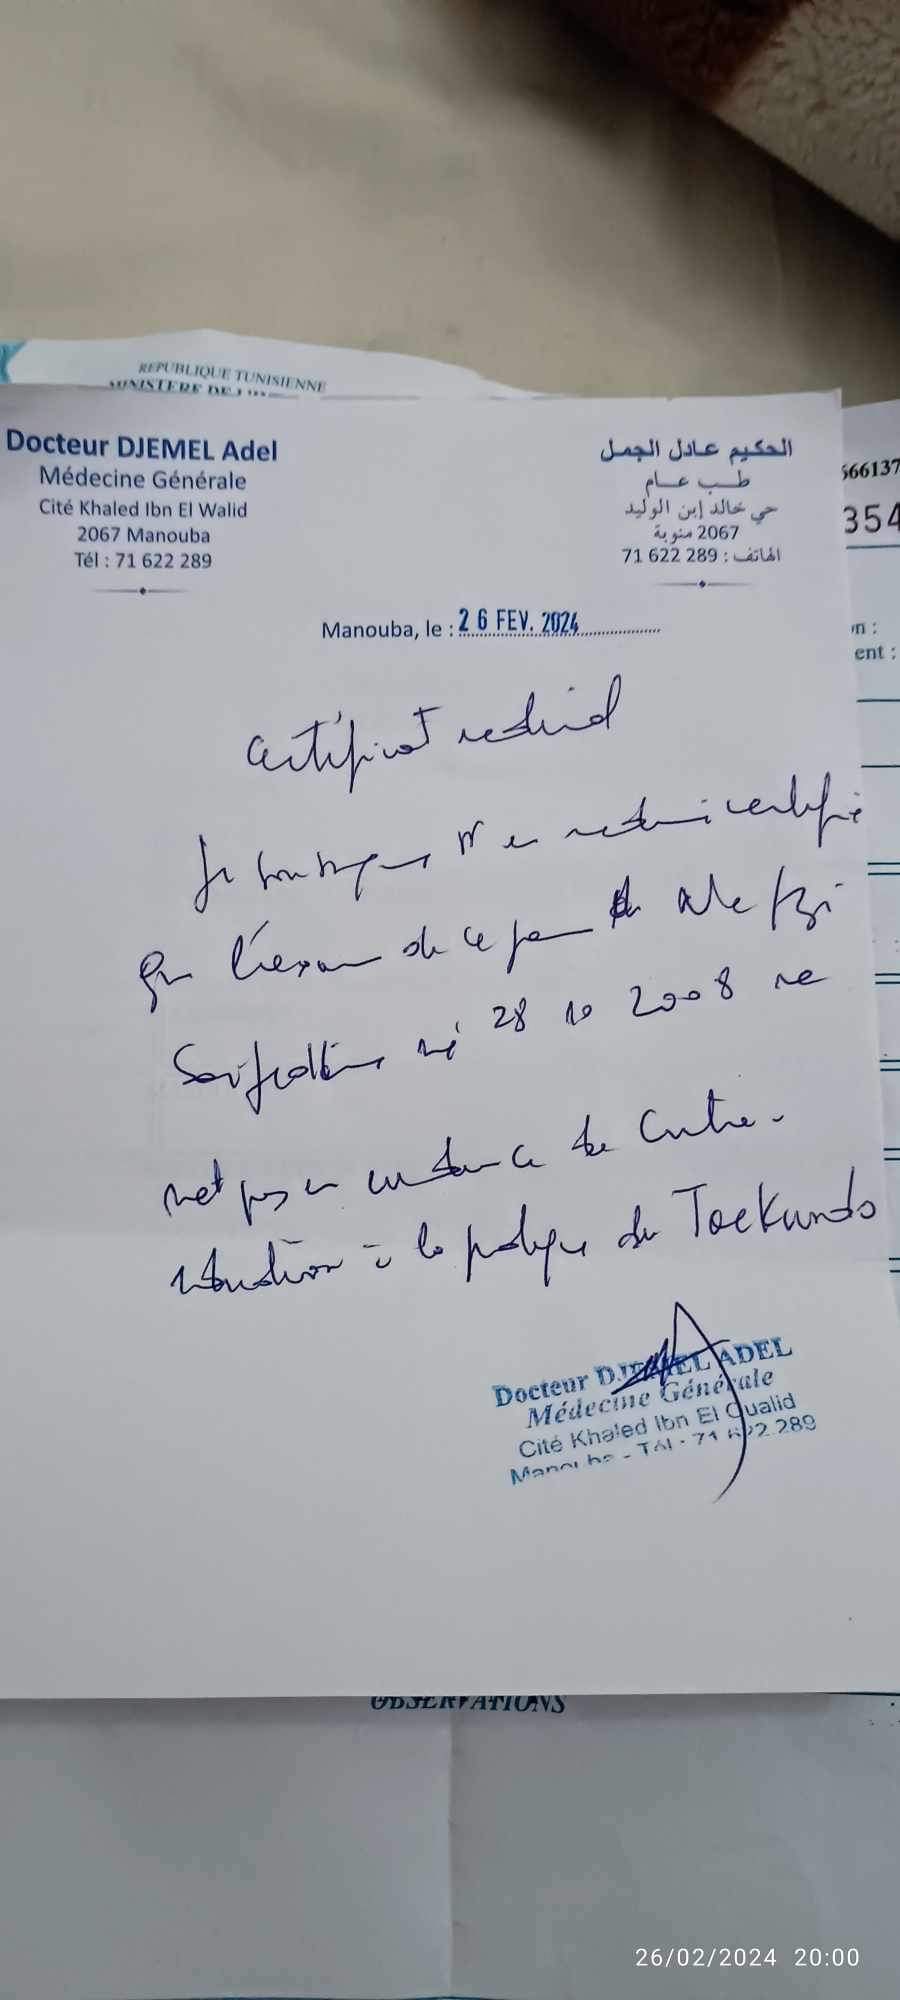 REPUBLIQUE TUNISIENNE
MINISTERE DE
Docteur DJEMEL Adel
Médecine Générale
Cité Khaled Ibn El Walid
2067 Manouba
Tél : 71 622 289
الحكيم عادل الجمل
طب عام
حي خالد إبن الوليد
2067 منوبة
الهاتف : 289 622 71
66137
354
ent :
Manouba, le : 26 FEV. 2024
Certificat medical
Je soussigné en medecin certifie
que l'examen de ce jour de
né 28 10 2008 ne
met pas en evidence de contre-
indication à la pratique du Taekwondo
Docteur DJEMEL ADEL
Médecine Générale
Cité Khaled Ibn El Oualid
Manouba - Tél : 71 622 289
OBSERVATIONS
26/02/2024 20:00